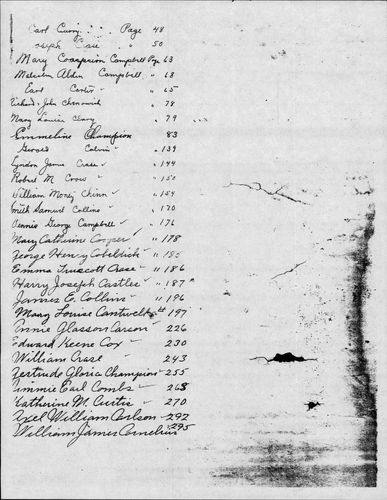 Carl Curry " Page 48
Joseph Case " 50
Mary Campbell Page 63
Malcolm Alden Campbell " 68
Earl Carter " 65
Richard John " 78
Mary Louise " 79
Emmeline Champion 83
Gerard Colvin " 139
Lyndon Jamie Crase " 144
Robert M Crow " 150
William Monty Chinn " 154
Samuel Collins " 170
Dennis George Campbell " 176
Mary Catherine Cooper " 178
George Henry Cobeldick " 185
Emma Truscott Case " 186
Harry Joseph Castles " 187
James E. Collins " 196
Mary Louise 197
Annie Glasson Carson 226
Edward Keene Cox 230
William Crase 243
Gertrude Gloria Champion 255
Jimmie Earl Combs 263
Katherine M. Curtis " 270
Axel William Carlson 292
William James Cornelius 295